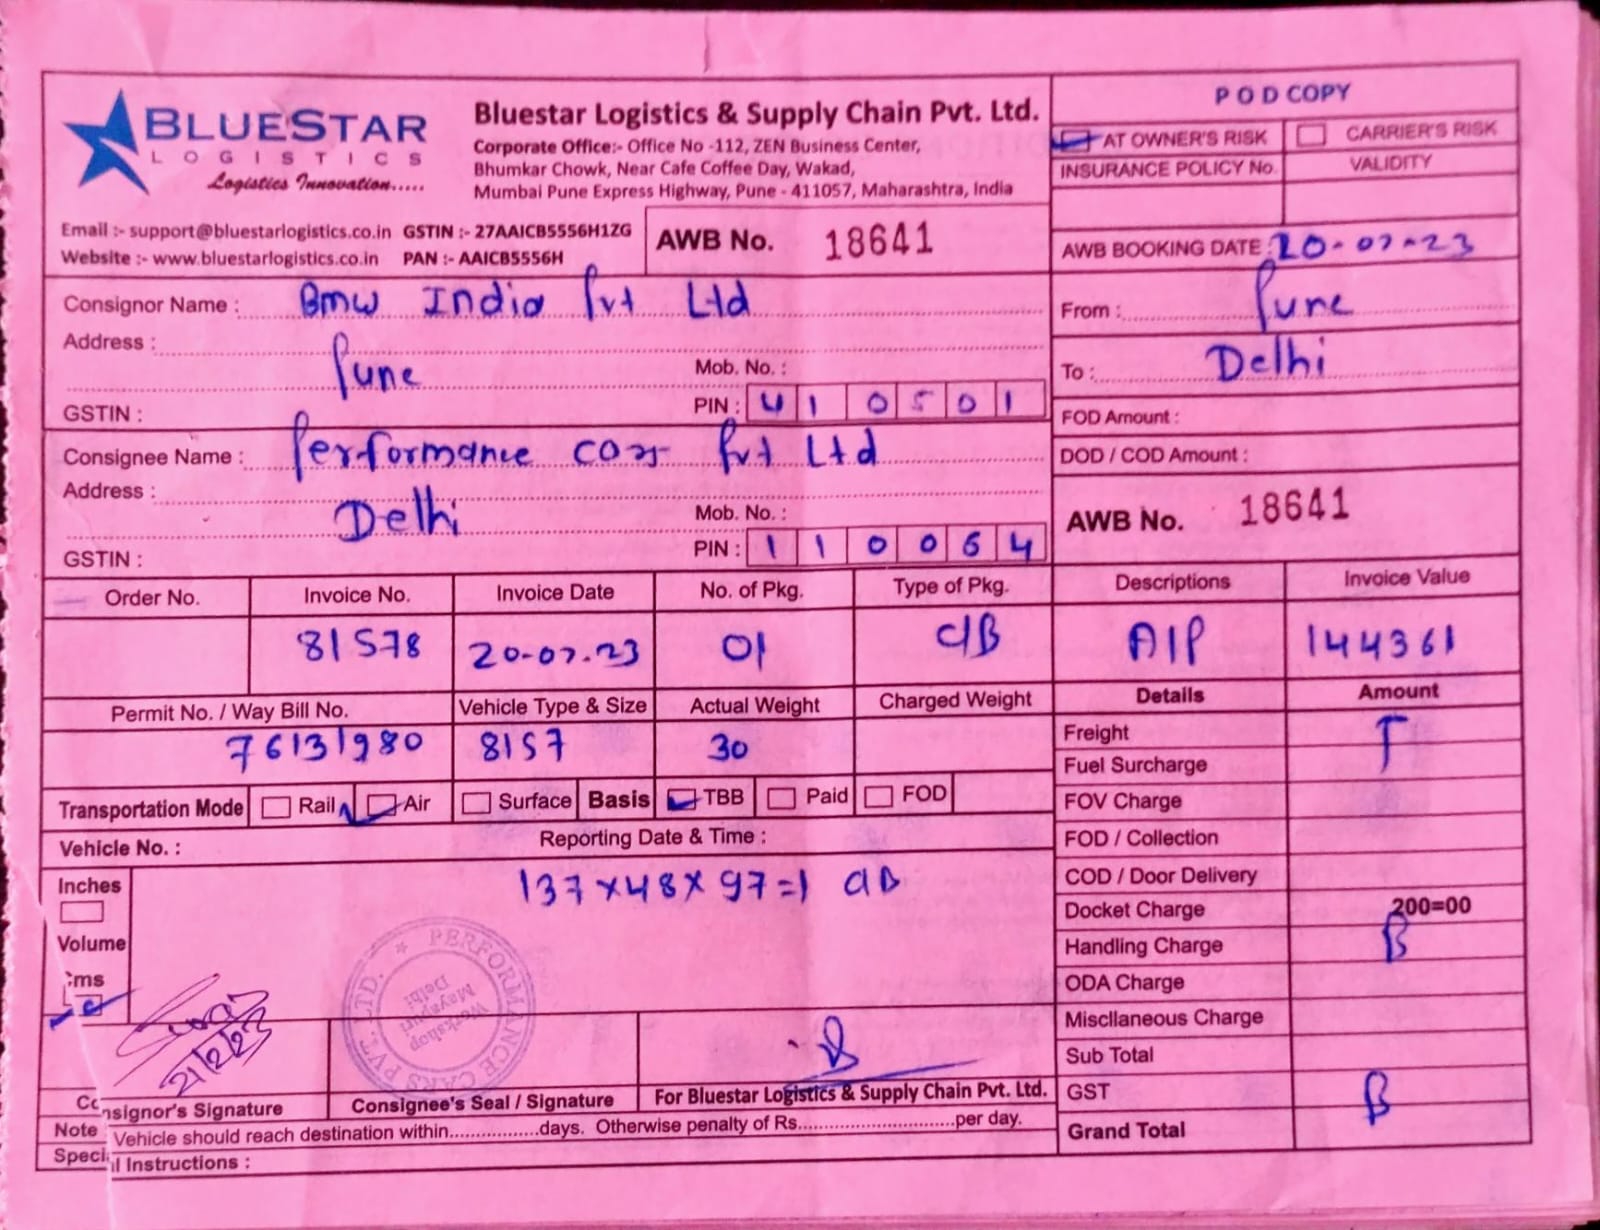 BLUESTAR
LOGISTICS
Logistics Innovation.....
Bluestar Logistics & Supply Chain Pvt. Ltd.
Corporate Office:- Office No -112, ZEN Business Center,
Bhumkar Chowk, Near Cafe Coffee Day, Wakad,
Mumbai Pune Express Highway, Pune - 411057, Maharashtra, India
Email :- support@bluestarlogistics.co.in GSTIN :- 27AAICB5556H1ZG
Website :- www.bluestarlogistics.co.in PAN :- AAICB5556H
AWB No. 18641
POD COPY
AT OWNER'S RISK CARRIER'S RISK
INSURANCE POLICY No. VALIDITY
AWB BOOKING DATE : 20-07-23
Consignor Name : Bmw India Pvt Ltd
Address :
Pune
Mob. No. :
GSTIN :
PIN : 410501
From : Pune
To : Delhi
FOD Amount :
DOD / COD Amount :
Consignee Name : Performance Cars Pvt Ltd
Address :
Delhi
Mob. No. :
GSTIN :
PIN : 110064
AWB No. 18641
Order No. Invoice No. Invoice Date No. of Pkg. Type of Pkg. Descriptions Invoice Value
81578 20-07-23 01 C/B A/P 144361
Permit No. / Way Bill No. Vehicle Type & Size Actual Weight Charged Weight
76131980 8157 30
Transportation Mode Rail Air Surface Basis TBB Paid FOD
Vehicle No. : Reporting Date & Time :
Inches
Volume
Cms
137×48×97=1 C/B
Details Amount
Freight T
Fuel Surcharge
FOV Charge
FOD / Collection
COD / Door Delivery
Docket Charge 200=00
Handling Charge B
ODA Charge
Miscllaneous Charge
Sub Total
GST B
Grand Total
PERFORMANCE CARS PVT. LTD.
Workshop
Mayapuri
Delhi
Consignor's Signature Consignee's Seal / Signature For Bluestar Logistics & Supply Chain Pvt. Ltd.
Note Vehicle should reach destination within.................days. Otherwise penalty of Rs.............................per day.
Special Instructions :